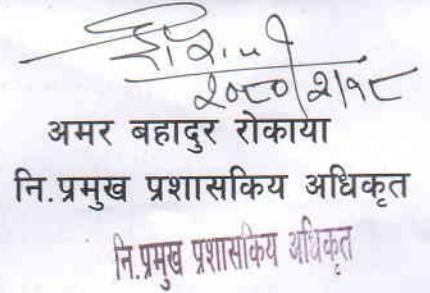 २०८०/२/१८
अमर बहादुर रोकाया
नि.प्रमुख प्रशासकिय अधिकृत
नि.प्रमुख प्रशासकिय अधिकृत